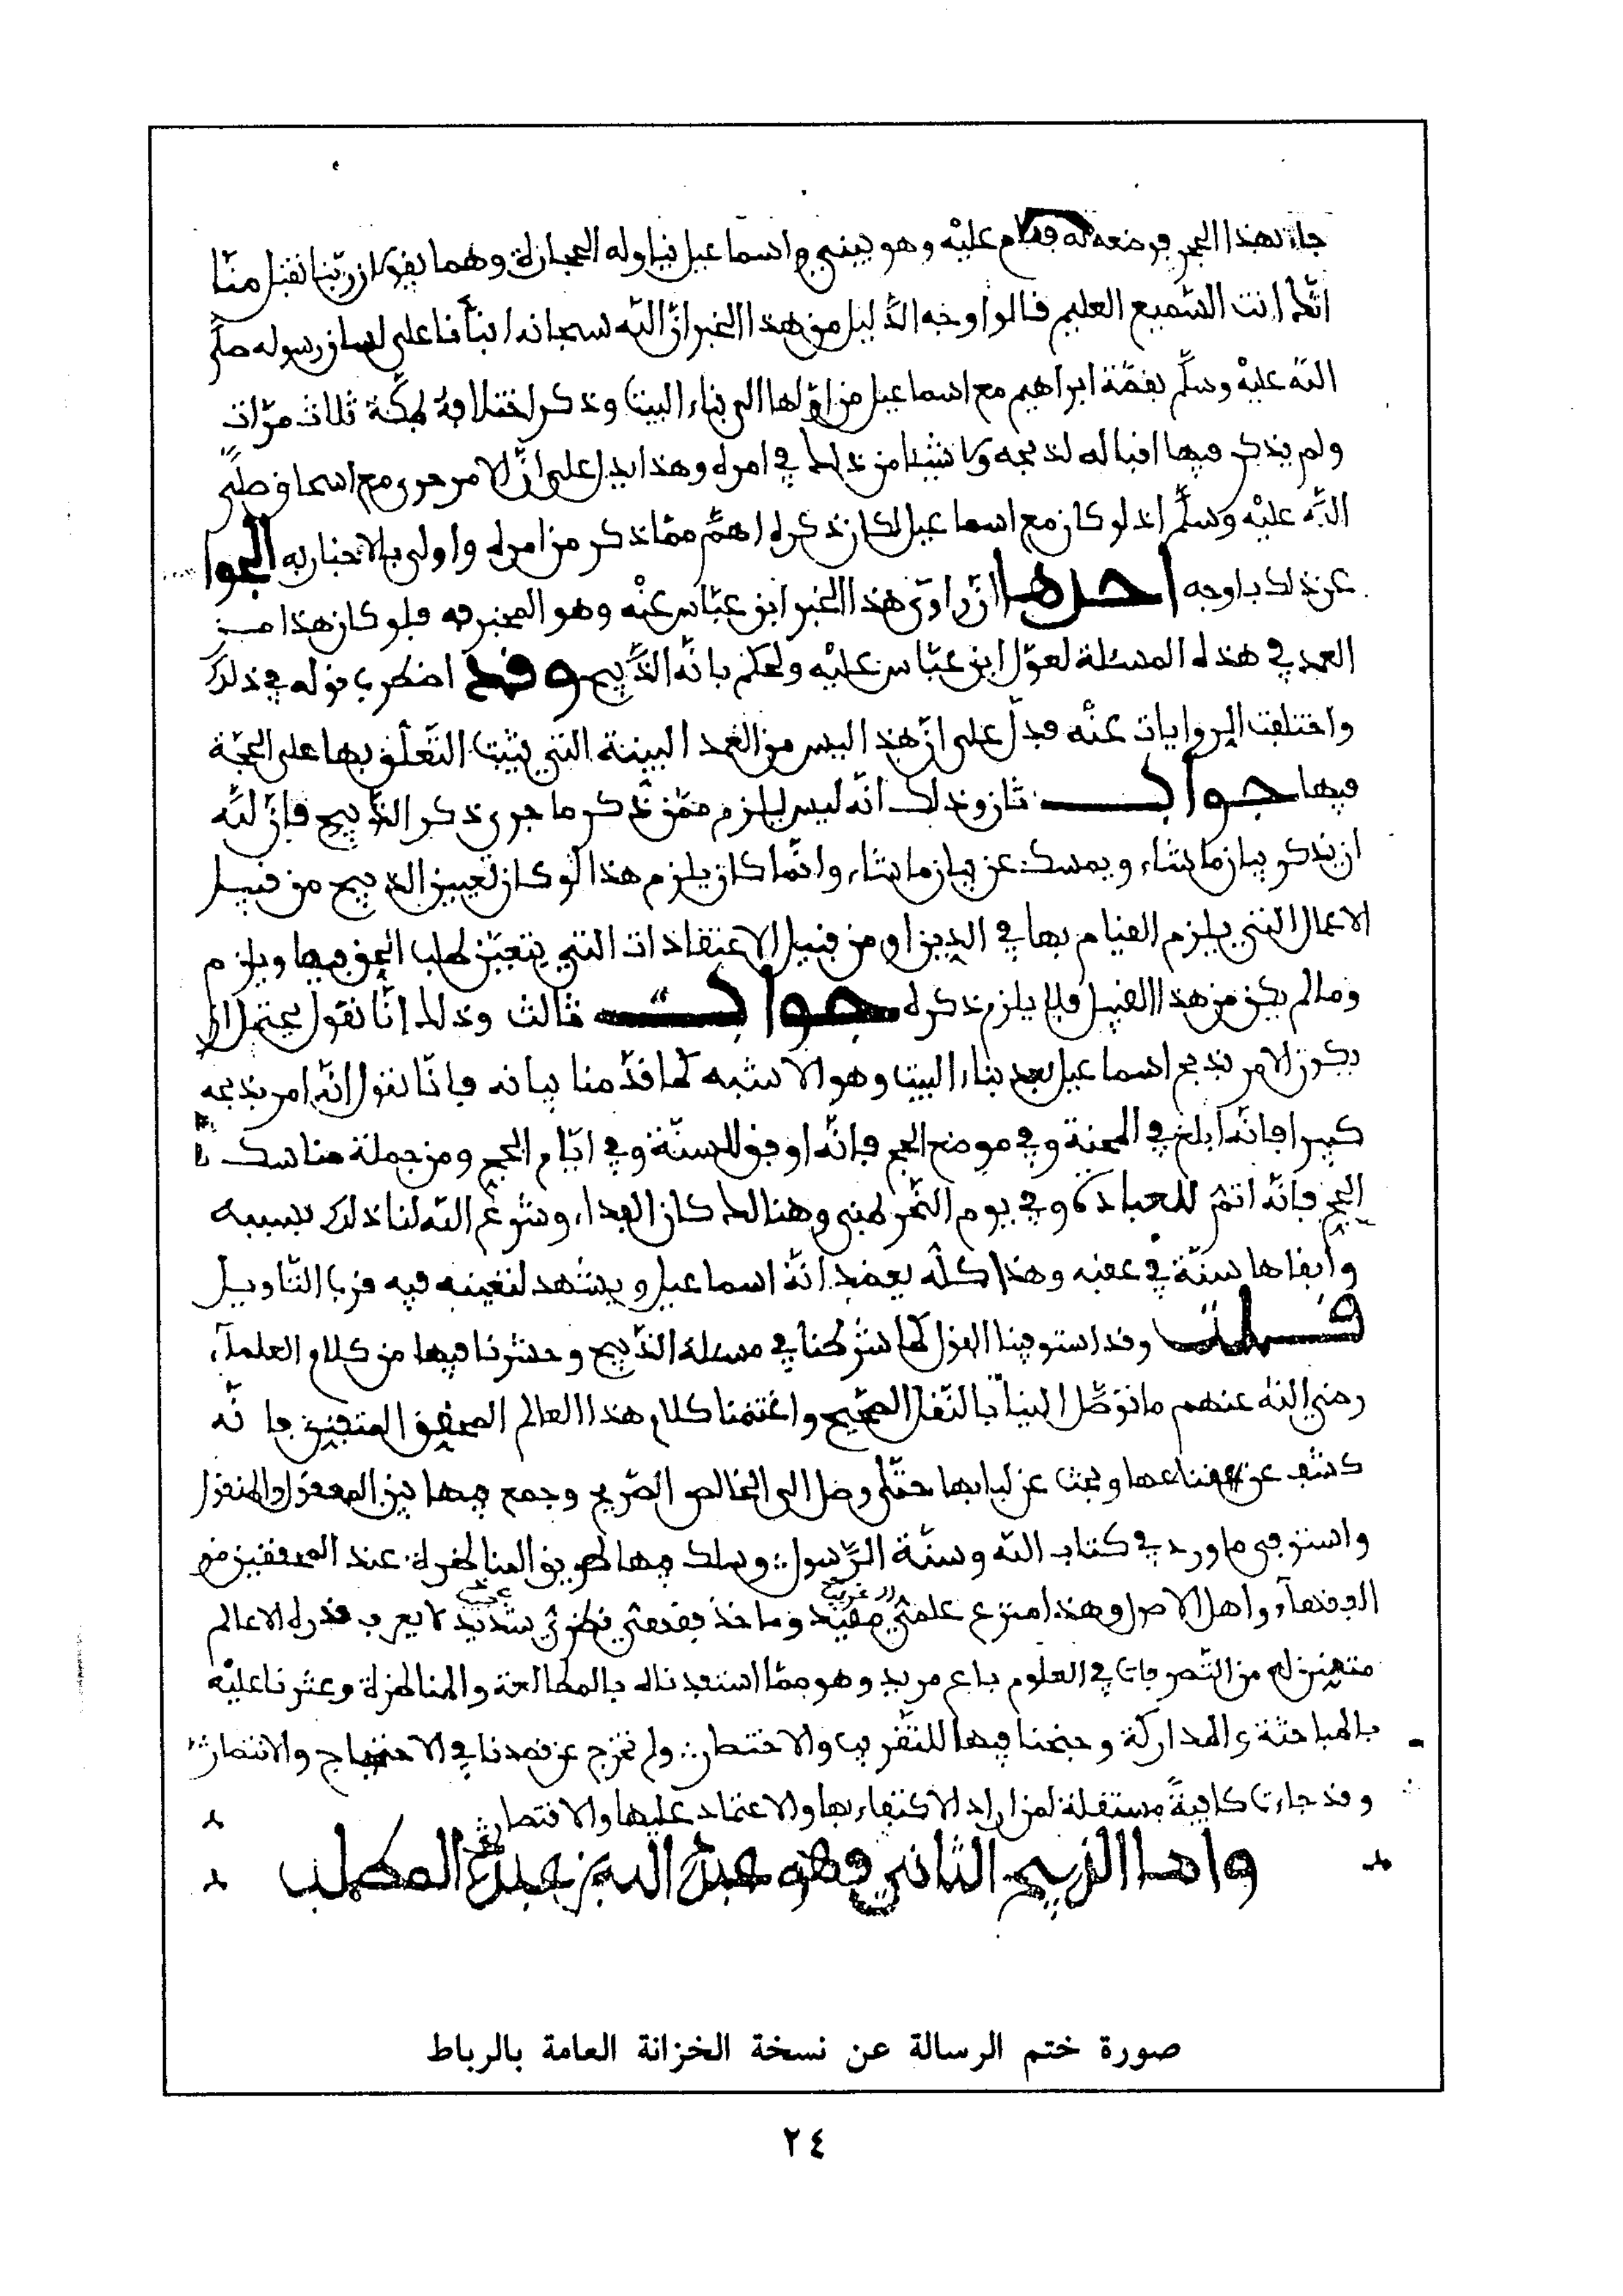 جاء بهذا الحجر فوضعه له فقام عليه وهو يبني واسماعيل يناوله الحجارة وهما يقولان ربنا تقبل منّا
انّك انت السّميع العليم قالوا وجه الدّليل من هذا الخبر انّ اللّه سبحانه انبأنا على لسان رسوله صلّى
اللّه عليه وسلّم بقصّة ابراهيم مع اسماعيل من اوّلها الى بناء البيت وذكر اختلافه لمكّة ثلاث مرّات
ولم يذكر فيها اقباله لذبحه ولا شيئا من ذلك في امره وهذا يدل على انّ الامر جرى مع اسحاق صلّى
اللّه عليه وسلّم اذ لو كان مع اسماعيل لكان ذكره اهمّ ممّا ذكر من امره واولى بالاخبار به الجواب
عن ذلك باوجه احدها انّ راوي هذا الخبر ابن عبّاس عنه وهو المخبر به فلو كان هذا من
العمد في هذه المسئلة لعوّل ابن عبّاس عليه ولحكم بانّه الذّبيح وقد اضطرب قوله في ذلك
واختلفت الروايات عنه فدلّ على ان هذا ليس من العمد البينة التي يثبت التّعلّق بها على الحجّة
فيها جواب ثان وذلك انّه ليس يلزم ممّن ذكر ما جرى ذكر الذّبيح فانّ للّه
ان يذكر بيان ما يشاء ويمسك عن بيان ما يشاء وانّما كان يلزم هذا لو كان تعيين الذبيح من قبيل
الاعمال التي يلزم القيام بها في الدين او من قبيل الاعتقادات التي يتعيّن طلب الحق فيها ويلزم
وما لم يكن من هذا القبيل فلا يلزم ذكره جواب ثالث وذلك انّا نقول يحتمل ان
يكون الامر بذبح اسماعيل بعد بناء البيت وهو الاشبه كما قدّمنا بيانه فانّا نقول انّه امر بذبحه
كبيرا فانّه ابلغ في المحنة وفي موضع الحج فانّه اوفق للسنّة وفي ايّام الحج ومن جملة مناسك
الحج فانّه اتمّ للعبادة وفي يوم النّحر بمنى وهنالك كان الفداء وشرع اللّه لنا ذلك بسببه
وابقاها سنّة في عقبه وهذا كلّه يعضد انّه اسماعيل ويشهد لتعيينه فيه قرب التّأويل
قلت وقد استوفينا القول كما شرطنا في مسئلة الذّبيح وحشرنا فيها من كلام العلماء
رضي اللّه عنهم ما توصّل الينا بالنّقل الصّحيح واغتنمنا كلام هذا العالم المحقق المتفنن فانّه
كشف عن قناعها وبحث عن لبابها حتّى وصل الى الخالص الصّريح وجمع فيها بين المعقول والمنقول
واستوفى ما ورد في كتاب اللّه وسنّة الرّسول وسلك فيها طريق المناظرة عند المحققين من
الفقهاء واهل الاصول وهذا منزع علميّ غريب مفيد وماخذ فقهيّ نظريّ عجيب شديد لا يعرف قدره الا عالم
متفنن له من التّصرفات في العلوم باع مديد وهو ممّا استفدناه بالمطالعة والمناظرة وعثرنا عليه
بالمباحثة والمذاركة وجنحنا فيها للتقريب والاختصار ولم نخرج عن قصدنا في الاحتجاج والانتصار
وقد جاءت كافيةً مستقلة لمن اراد الاكتفاء بها والاعتماد عليها والاقتصار
واما الذبيح الثاني فهو عبد الله بن عبد المطلب
صورة ختم الرسالة عن نسخة الخزانة العامة بالرباط
٢٤